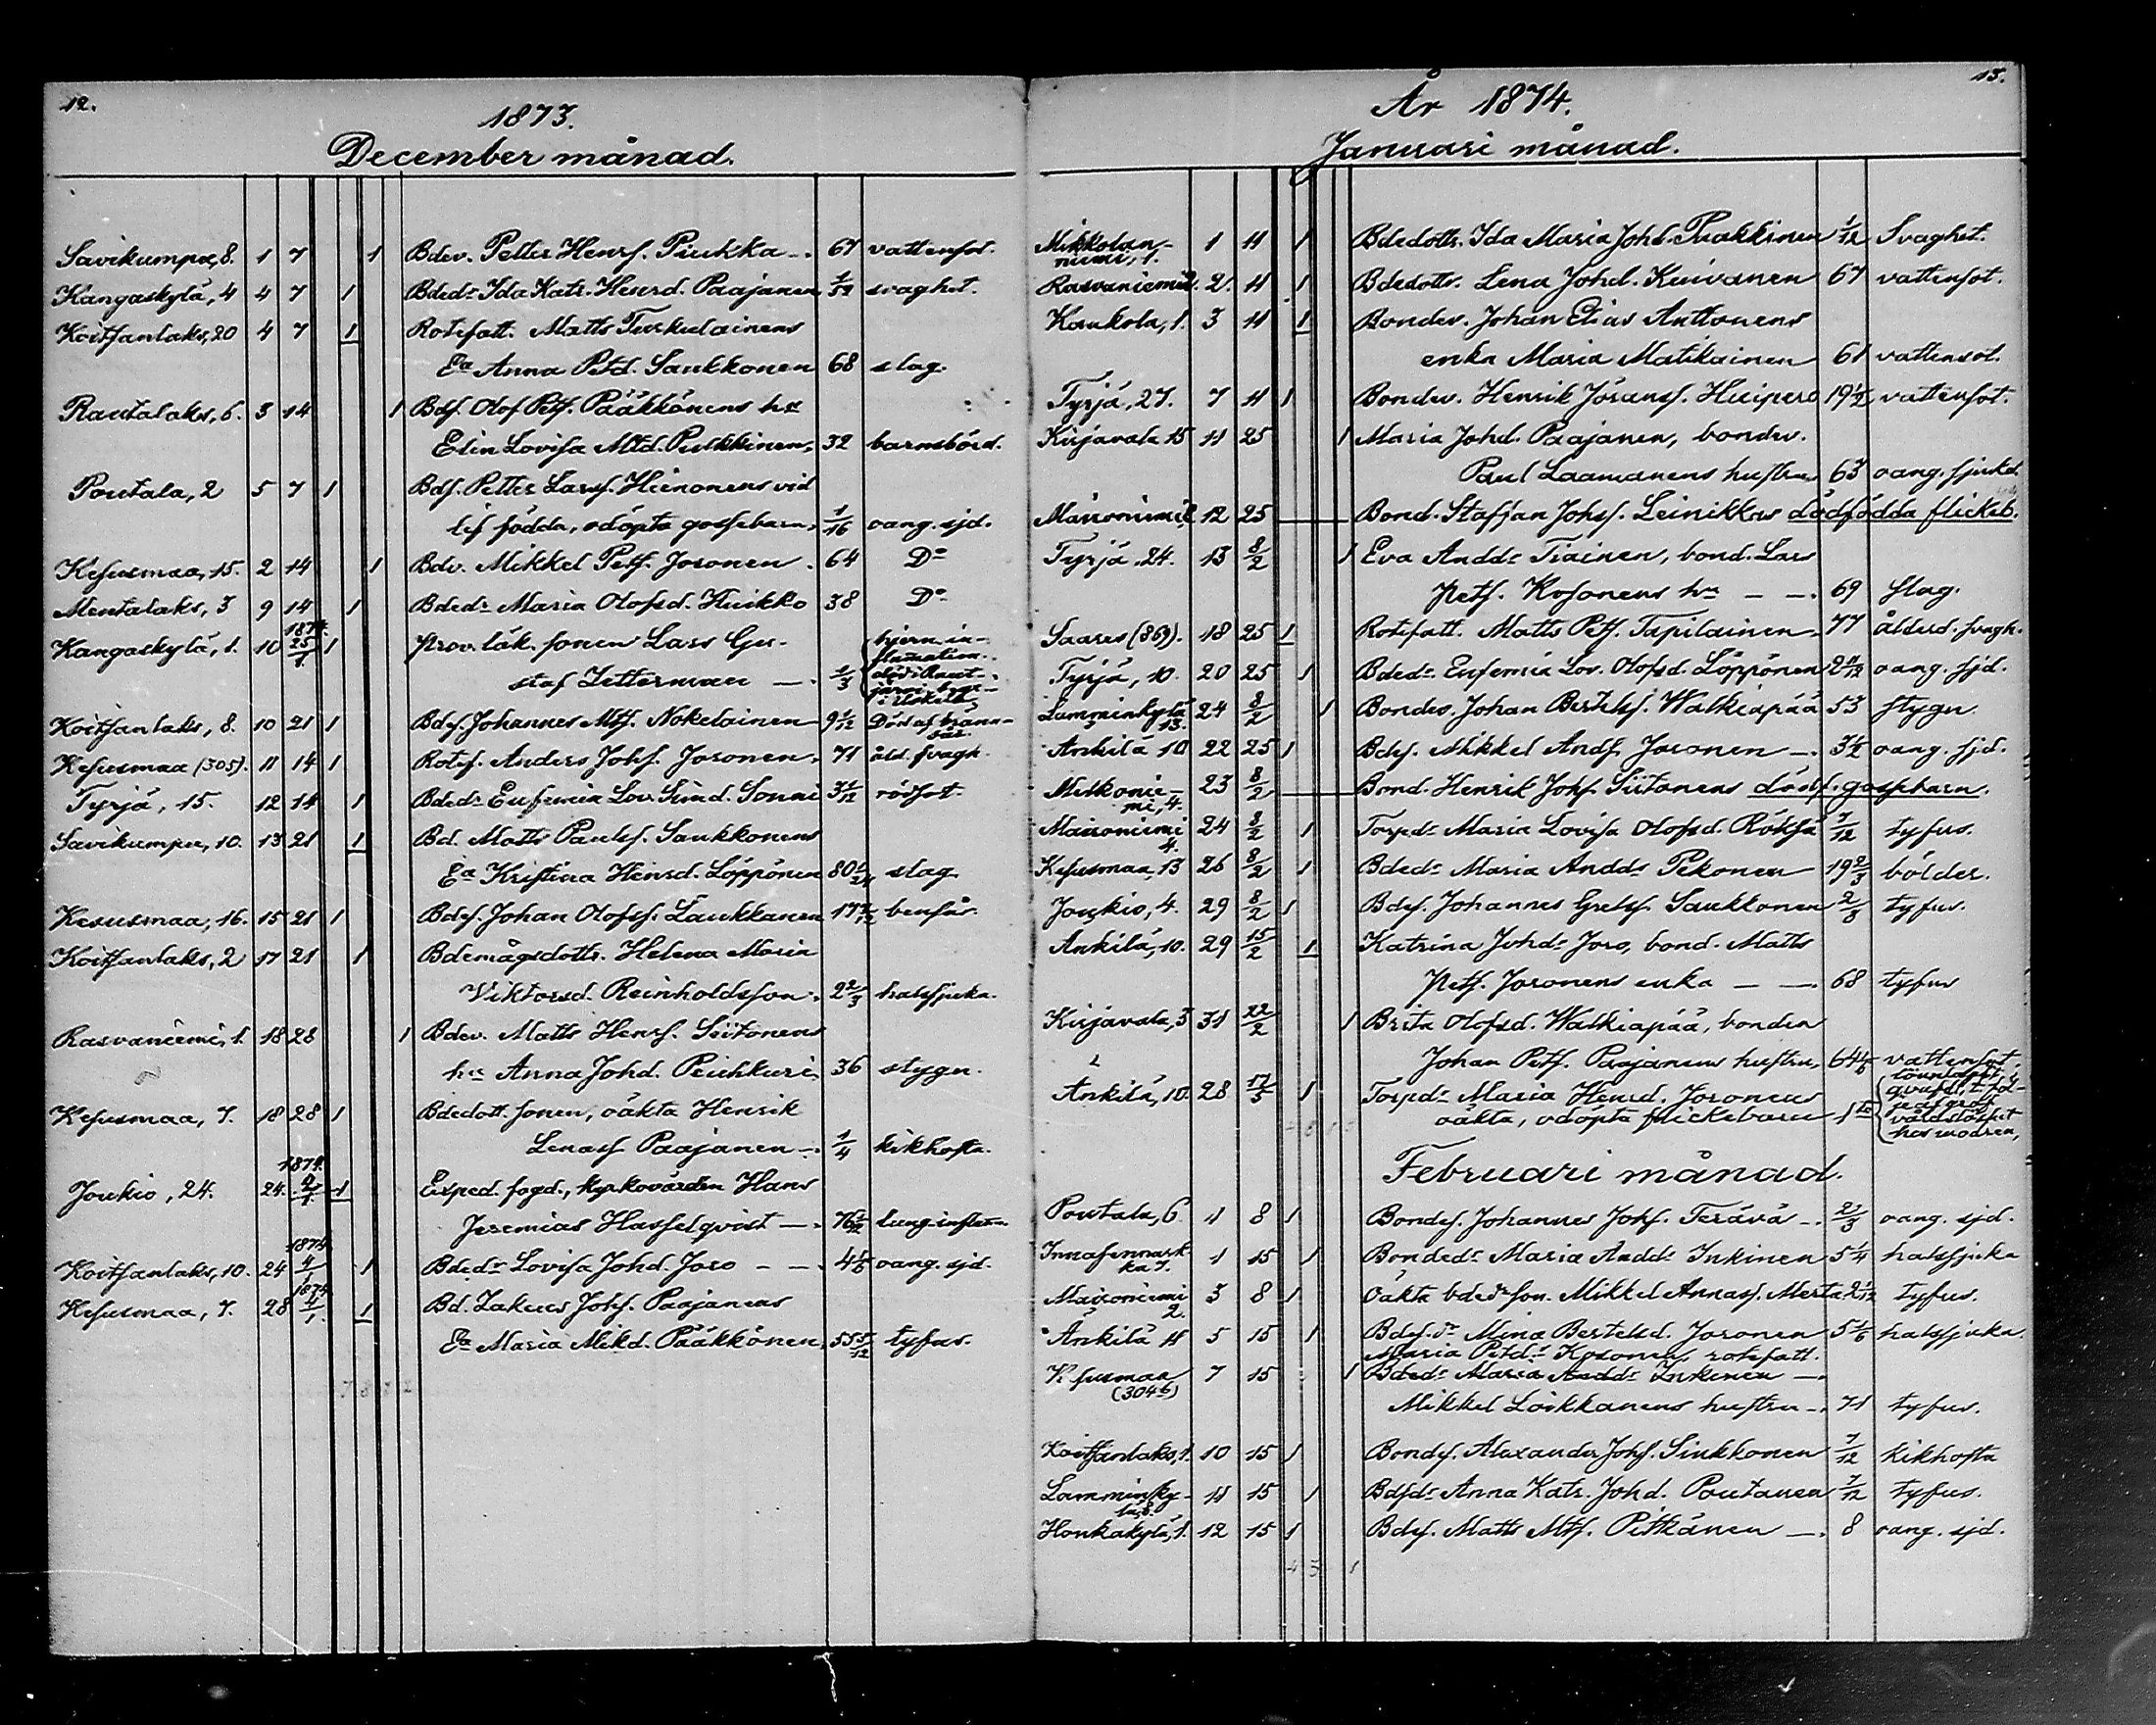 12.
1873.
December månad.
Savikumpu, 8. 1 7 1 Bdev. Petter Henrs. Piukka 67 vattensot.
Kangaskylä, 4 4 7 1 Bdedr Ida Katr. Henrd. Paajanen 1/52 svaghet.
Koitsanlaks, 20 4 7 1 Rotefatt. Matts Turkulainens
Ea Anna Petd. Saukkonen 68 slag.
Rautalaks, 6. 3 14 1 Bdf. Olof Petf. Pääkkönens hu
Elin Lovisa Mtd. Pulkkinen, 32 barnsbörd.
Poutala, 2 5 7 1 Bdf. Petter Larsf. Hiinonens vid
lif födda, odöpta gossebarn, 1/16 oang. sjd.
Kesusmaa, 15. 2 14 1 Bdv. Mikkel Petf. Joronen 64 Do
Mentalaks, 3 9 14 1 Bdedr Maria Olofsd. Huikko 38 Do
Kangaskylä, 1. 10 1874. 25/1 1 Prov. läk. sonen Lars Gu-
staf Zetterman — 1/3 hjern in-
flammation.
Koitsanlaks, 8. 10 21 1 Bdes. Johannes Mtf. Nokelainen 9 1/12 Död af bränn-
sår.
Kesusmaa (305). 11 14 1 Rotef. Anders Johf. Joronen. 71 åld. svagh.
Tyrjä, 15. 12 14 1 Bdedr Eufemia Lov. Simd. Sonni 3 1/12 rödsot
Savikumpu, 10. 13 21 1 Bd. Matts Paulsf. Saukkonens
Ea Kristina Heinrd. Löppönen 80 1/24 slag.
Kesusmaa, 16. 15 21 1 Bdes. Johan Olofsf. Laukkanen 17 7/12 bensår.
Koitsanlaks, 2 17 21 1 Bdemågsdottr. Helena Maria
Viktorsd. Reinholdsson. 2 2/3 halssjuka.
Rasvaniemi, 1. 18 28 1 Bdev. Matts Henrf. Siitonens
hu Anna Johd. Peuhkuri, 36 stygn.
Kesusmaa, 7. 18 28 1 Bdedott. sonen, oäkta Henrik
Lenasf Paajanen —. 1/4 kikhosta.
Joukio, 24. 24. 1874. 2/1. 1 Exped. fogd., kyrkovärden Hans
Jeremias Hasselqvist —. 76 1/12 lunginflam.
Koitsanlaks, 10. 24 1874 4/1 1 Bdedr Lovisa Johd. Joro — —. 4 1/6 oang. sjd.
Kesusmaa, 7. 28 1874 4/1. 1 Bd. Zakeus Johf. Paajanens
Ea Maria Mikd. Pääkkönen, 55 5/12 tyfus.
13.
År 1874.
Januari månad.
Mikkolan-
niemi, 1. 1 11 1 Bdedottr. Ida Maria Johd. Pitakkinen 1/12 Svaghet.
Rasvaniemi 2. 2. 11 1 Bdedottr. Lena Johd. Kuivanen 67 vattensot.
Kaukola, 1. 3 11 1 Bondev. Johan Elias Anttonens
enka Maria Matikainen 61 vattensot.
Tyrjä, 27. 7 11 1 Bondev. Henrik Jöransf. Huipero 19 1/2 vattensot.
Kirjavala 15 11 25 1 Maria Johd. Paajanen, bondev.
Paul Laamanens hustru 63 oang. sjukd.
Maironiemi, 12 25 Bond. Staffan Johsf. Leinikkas dödfödda flickeb.
Tyrjä, 24. 13 8/2 1 Eva Anddr Tiainen, bond. Lars
Petf. Kosonens hu — —. 69 slag.
Saares (869). 18 25 1 Rotefatt. Matts Petf. Tapilainen. 77 ålderd. svagh.
Tyrjä, 10. 20 25 1 Bdedr Eufemia Lov. Olofsd. Löppönen 2 11/12 oang. sjd.
Lamminkylä
13. 24 8/2 1 Bondes. Johan Bertelsf. Walkiapää 53 stygn.
Ankila 10 22 25 1 Bdes. Mikkel Andf. Joronen —. 3 1/2 oang. sjd.
Mikkonie-
mi, 4. 23 8/2 Bond. Henrik Johf. Siitonens dödf. gossebarn.
Maironiemi
4. 24 8/2 1 Torpdr Maria Lovisa Olofsd. Röksä 7/12 tyfus.
Kesusmaa, 13 26 8/2 1 Bdedr Maria Anddr Pekonen 19 2/3 bölder.
Joukio, 4. 29 8/2 1 Bdes. Johannes Grelsf. Saukkonen 2/3 tyfus.
Ankilä, 10. 29 15/2 1 Katrina Johdr Joro, bond. Matts
Petf. Joronens enka — —. 68 tyfus
Kirjavala, 3 31 22/2 1 Brita Olofsd. Walkiapää, bonden
Johan Petf. Paajanens hustru, 64 1/6 vattensot.
Ankilä, 10. 28 17/5 1 Torpdr Maria Henrd. Joronens
oäkta, odöpta flickebarn
hos modren,
Februari månad.
Poutala, 6 1 8 1 Bondes. Johannes Johf. Terävä —. 2/3 oang. sjd.
Innasennark-
ka 7. 1 15 1 Bondedr Maria Anddr Inkinen 5 1/4 halssjuka
Maironiemi
2. 3 8 1 Oäkta bdedr son. Mikkel Annasf. Merta 2 1/12 tyfus.
Ankilä 11 5 15 1 Bdes. dr Mina Bertelsd. Joronen 5 1/6 halssjuka.
Maria Petdr Kosonen, rotefatt.
Kesusmaa
(304b) 7 15 1 Bdedr Maria Anddr Inkinen —.
Mikkel Loikkanens hustru —. 71 tyfus.
Koitsanlaks, 1. 10 15 1 Bondes. Alexander Johf. Sinkkonen 7/12 kikhosta
Lamminky-
lä, 8. 11 15 1 Bdsdr Anna Katr. Johd. Poutanen 7/12 tyfus.
Honkakylä, 1. 12 15 1 Bdes. Matts Mtf. Pitkänen —. 8 oang. sjd.
4 3 1